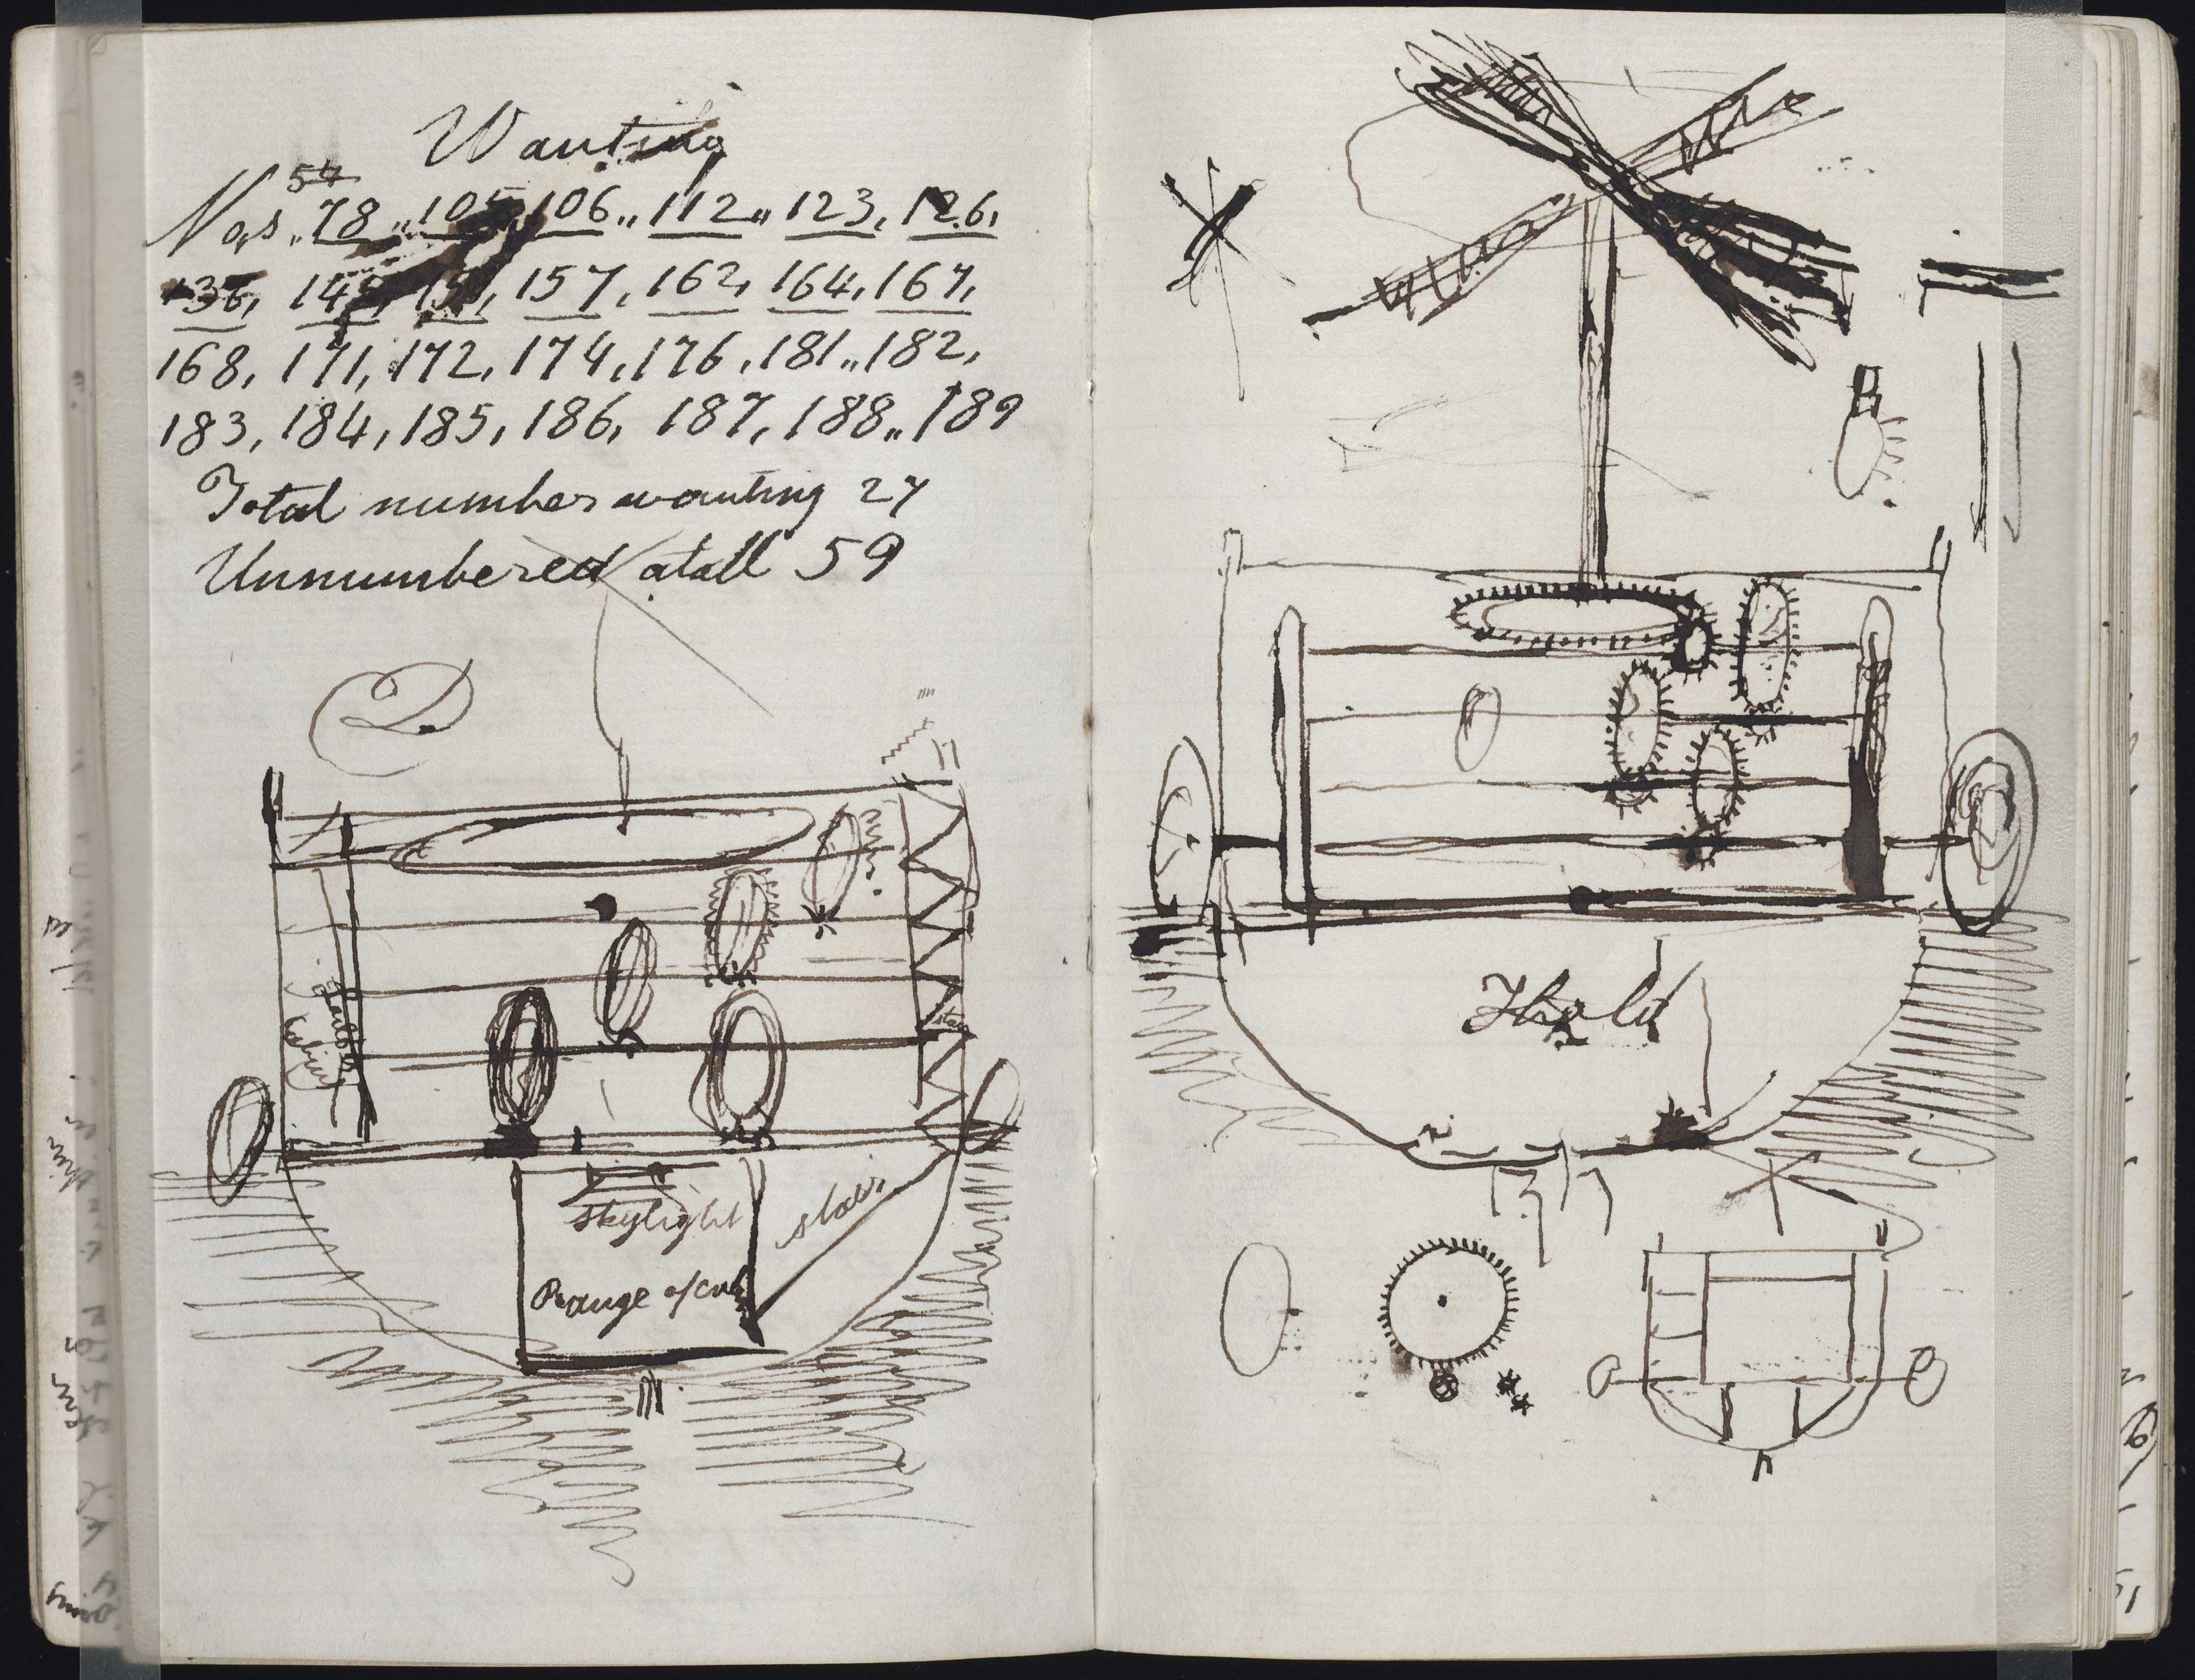 Wanting
54
Nos. 78,, 105, 106,, 112,, 123, 126,
136, 149, 151, 157, 162, 164, 167,
168, 171, 172, 174, 176, 181,, 182,
183, 184, 185, 186, 187, 188,, 189
Total number wanting 27
Unnumbered atall 59
skylight
stair
Range of
Hold